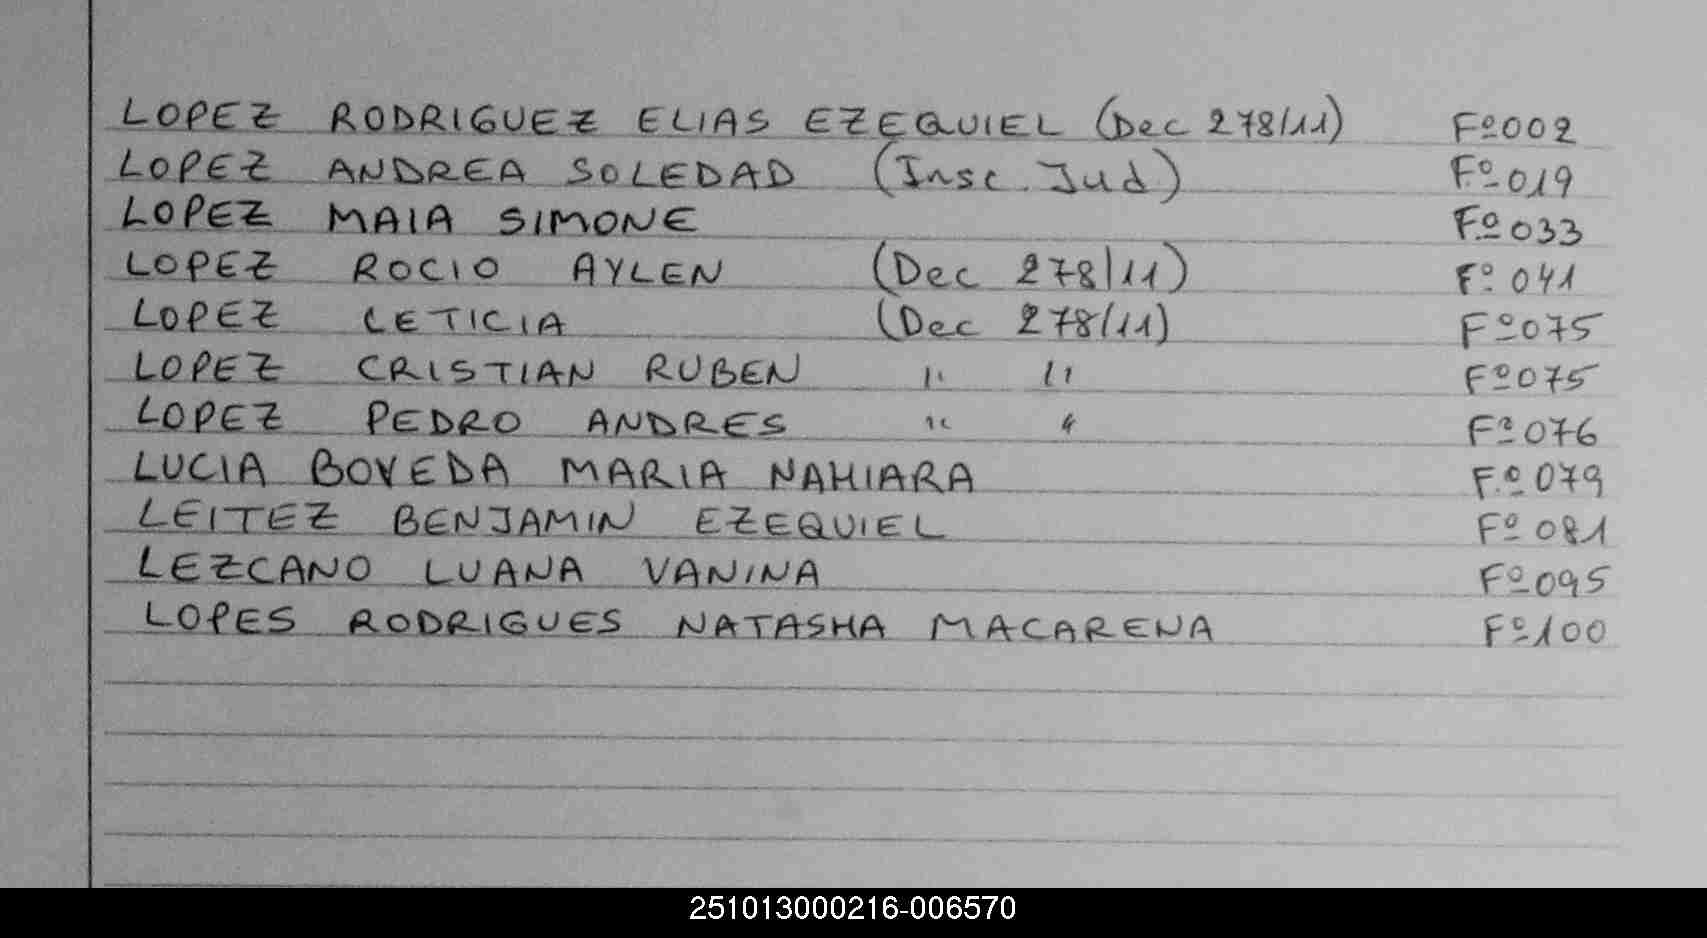 LOPEZ RODRIGUEZ ELIAS EZEQUIEL (Dec 278/11) Fº002
LOPEZ ANDREA SOLEDAD (Insc. Jud) Fº019
LOPEZ MAIA SIMONE Fº033
LOPEZ ROCIO AYLEN (Dec 278/11) Fº 041
LOPEZ LETICIA (Dec 278/11) Fº075
LOPEZ CRISTIAN RUBEN " " Fº075
LOPEZ PEDRO ANDRES " " Fº076
LUCIA BOVEDA MARIA NAHIARA Fº079
LEITEZ BENJAMIN EZEQUIEL Fº081
LEZCANO LUANA VANINA Fº095
LOPES RODRIGUES NATASHA MACARENA Fº100
251013000216-006570